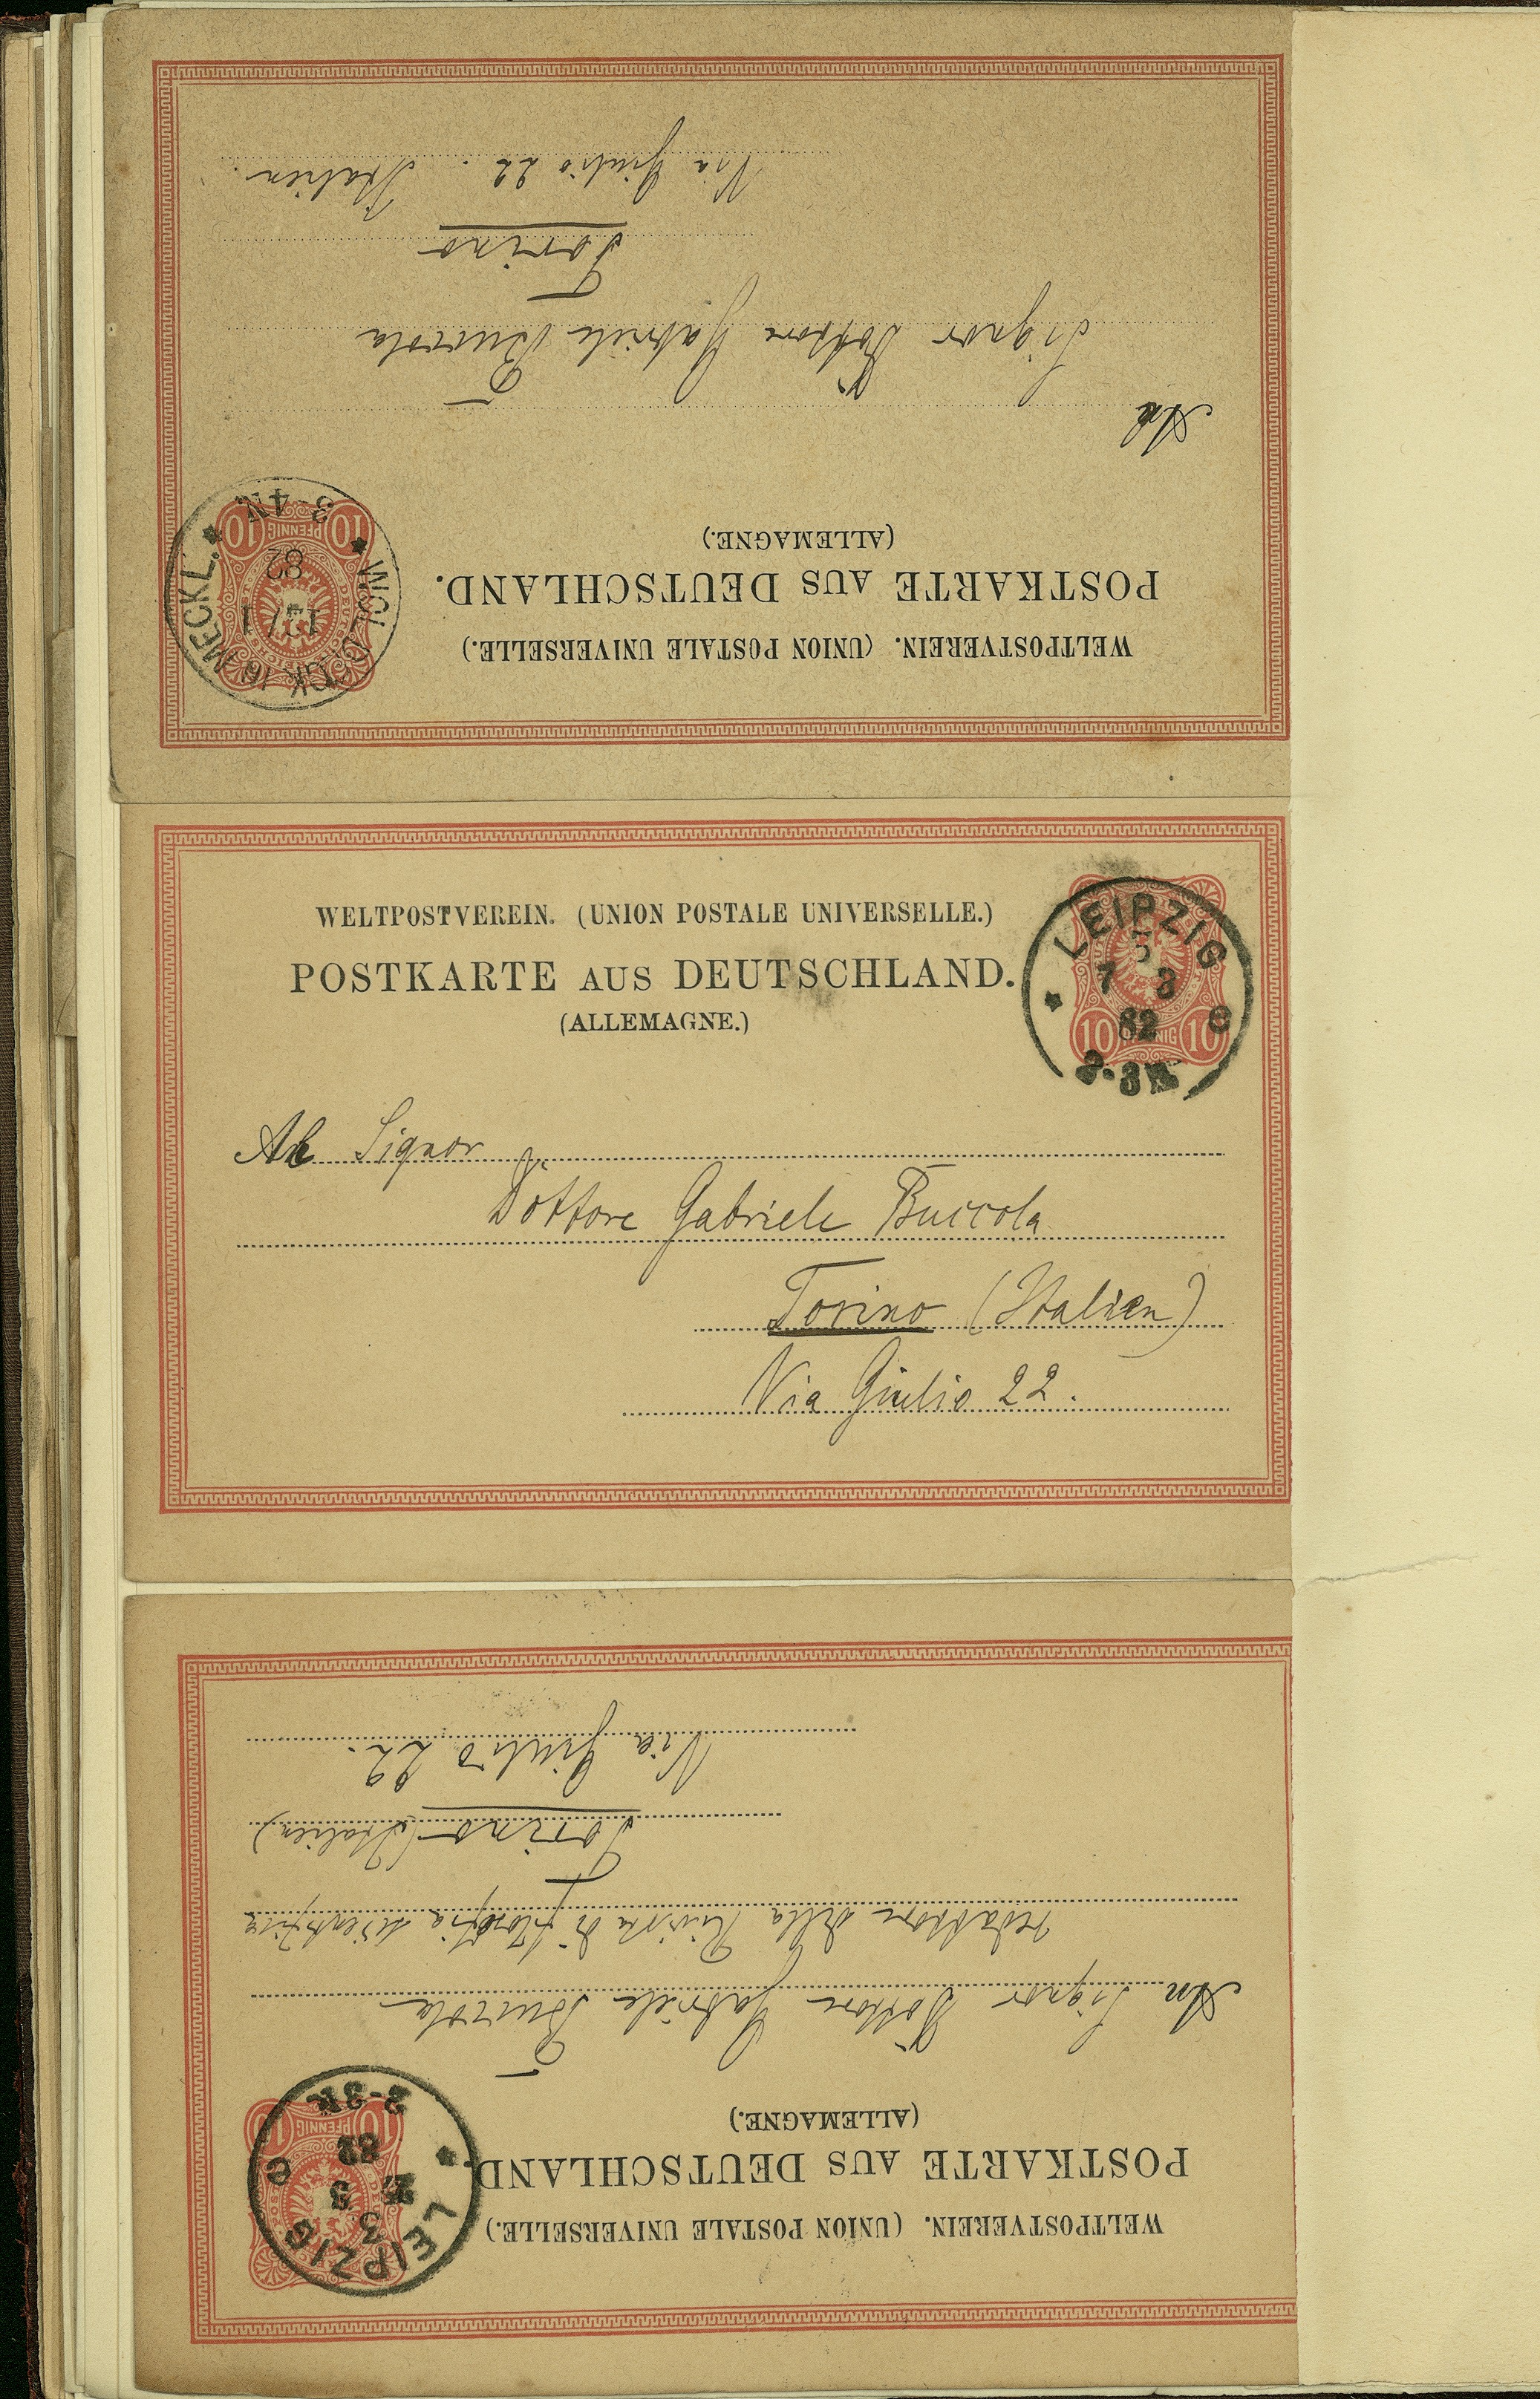 WELTPOSTVEREIN. (UNION POSTALE UNIVERSELLE.)
POSTKARTE AUS DEUTSCHLAND.
(ALLEMAGNE.)
An
Signor Dottore Gabriele Buccola
Torino
Via Giulio 22. Italien.
MECKL.
82
3-4N
10 PFENNIG 10
WELTPOSTVEREIN. (UNION POSTALE UNIVERSELLE.)
POSTKARTE AUS DEUTSCHLAND.
(ALLEMAGNE.)
LEIPZIG
82
10 PFENNIG 10
Al Signor
Dottore Gabriele Buccola
Torino (Italien)
Via Giulio 22.
WELTPOSTVEREIN. (UNION POSTALE UNIVERSELLE.)
POSTKARTE AUS DEUTSCHLAND
(ALLEMAGNE.)
LEIPZIG
3
82
2-3N
10 PFENNIG 10
An Signor Dottore Gabriele Buccola
redattore della Rivista di filosofia scientifica
Torino (Italien)
Via Giulio 22.